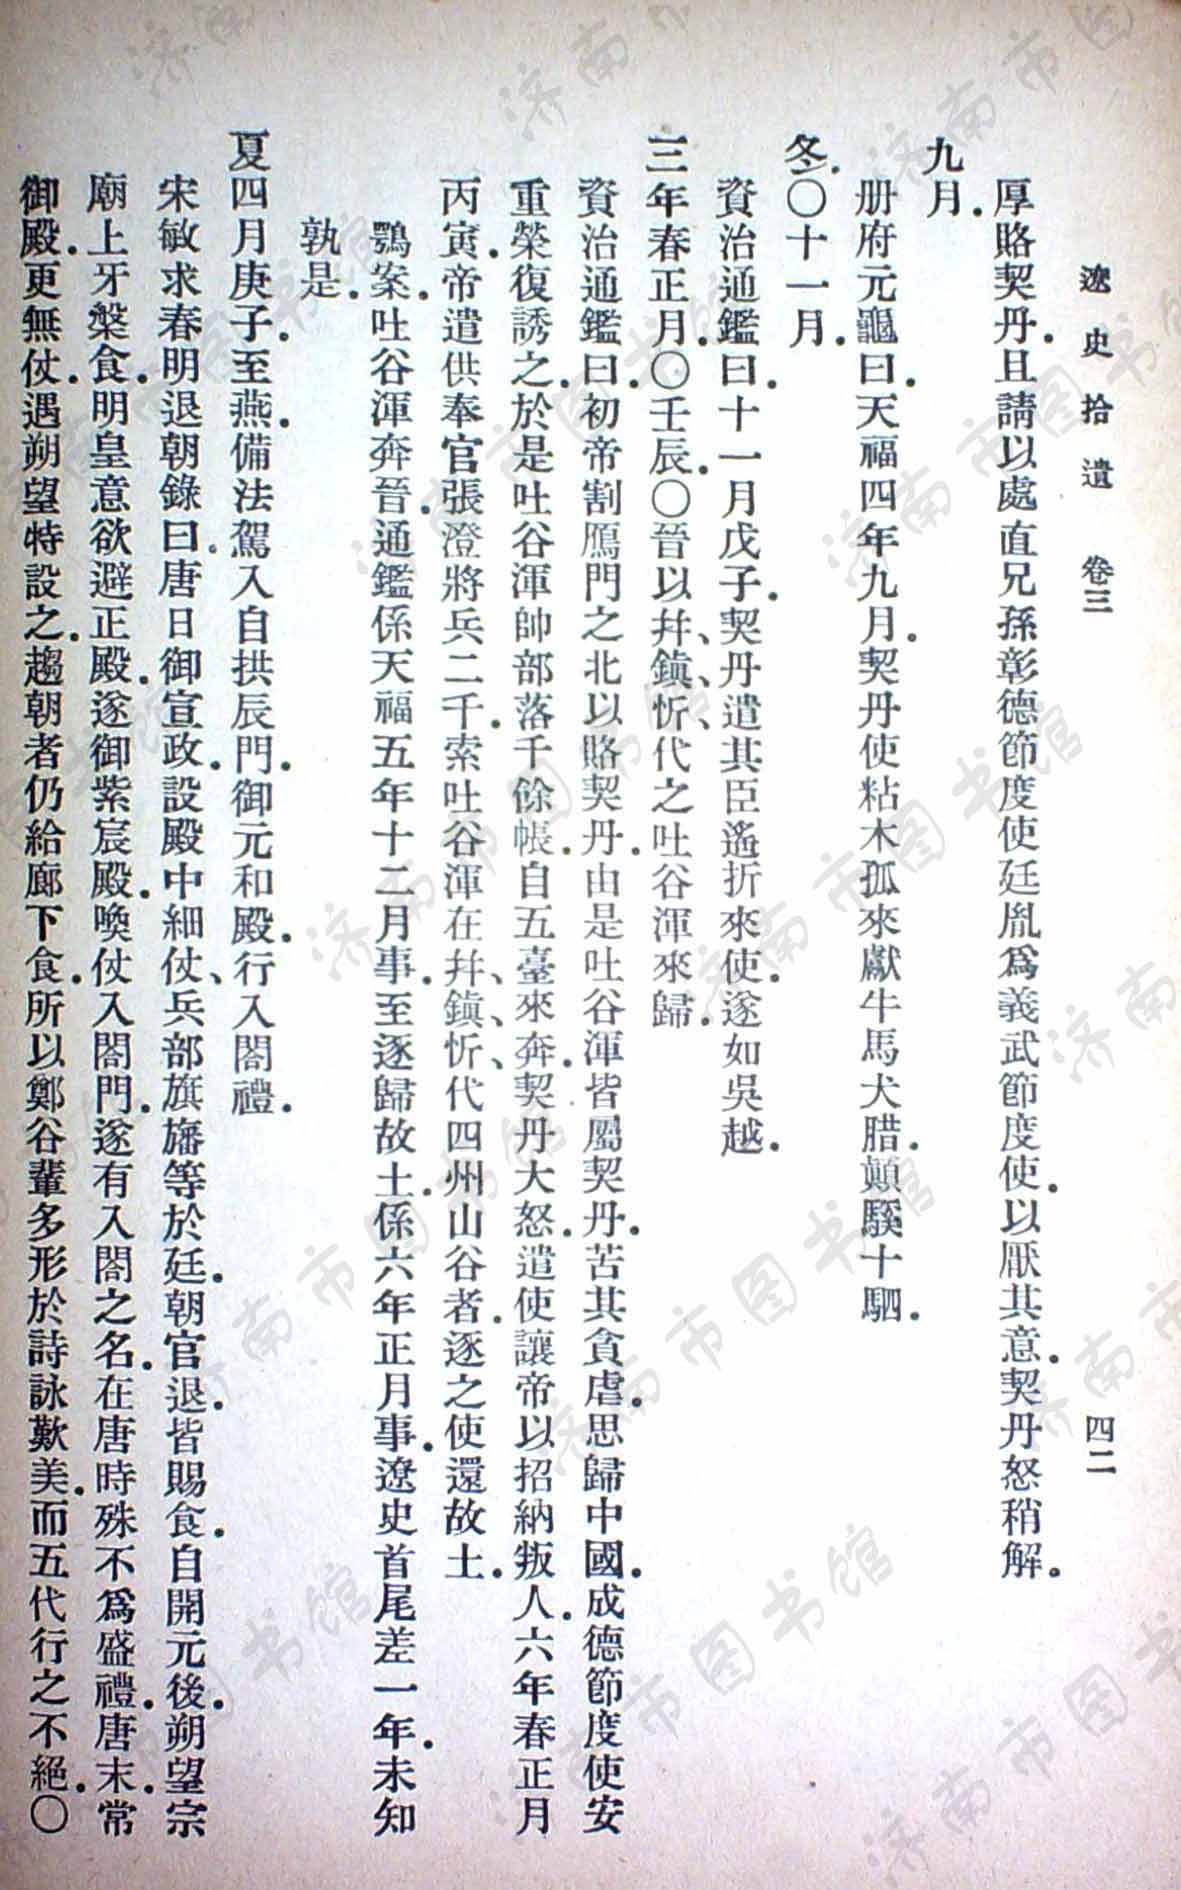 遼史拾遺 卷三 四二
厚賂契丹.且請以處直兄孫彰德節度使廷胤爲義武節度使.以厭其意.契丹怒稍解.
九月.
册府元龜曰.天福四年九月.契丹使粘木孤來獻牛馬犬腊.顛騣十駟.
冬.〇十一月.
資治通鑑曰.十一月戊子.契丹遣其臣遙折來使.遂如吳越.
三年春正月.〇壬辰.〇晉以幷、鎮、忻、代之吐谷渾來歸.
資治通鑑曰.初帝割鴈門之北以賂契丹.由是吐谷渾皆屬契丹.苦其貪虐.思歸中國.成德節度使安
重榮復誘之.於是吐谷渾帥部落千餘帳.自五臺來奔.契丹大怒.遣使讓帝以招納叛人.六年春正月
丙寅.帝遣供奉官張澄將兵二千.索吐谷渾在幷、鎮、忻、代四州山谷者.逐之使還故土.
鶚案.吐谷渾奔晉.通鑑係天福五年十二月事.至逐歸故土.係六年正月事.遼史首尾差一年.未知
孰是.
夏四月庚子.至燕.備法駕入自拱辰門.御元和殿.行入閤禮.
宋敏求春明退朝錄曰.唐日御宣政.設殿中細仗、兵部旗旛等於廷.朝官退.皆賜食.自開元後.朔望宗
廟上牙槃食.明皇意欲避正殿.遂御紫宸殿.喚仗入閤門.遂有入閤之名.在唐時殊不爲盛禮.唐末.常
御殿.更無仗.遇朔望特設之.趨朝者仍給廊下食.所以鄭谷輩多形於詩詠歎美.而五代行之不絕.〇
济南市图书馆